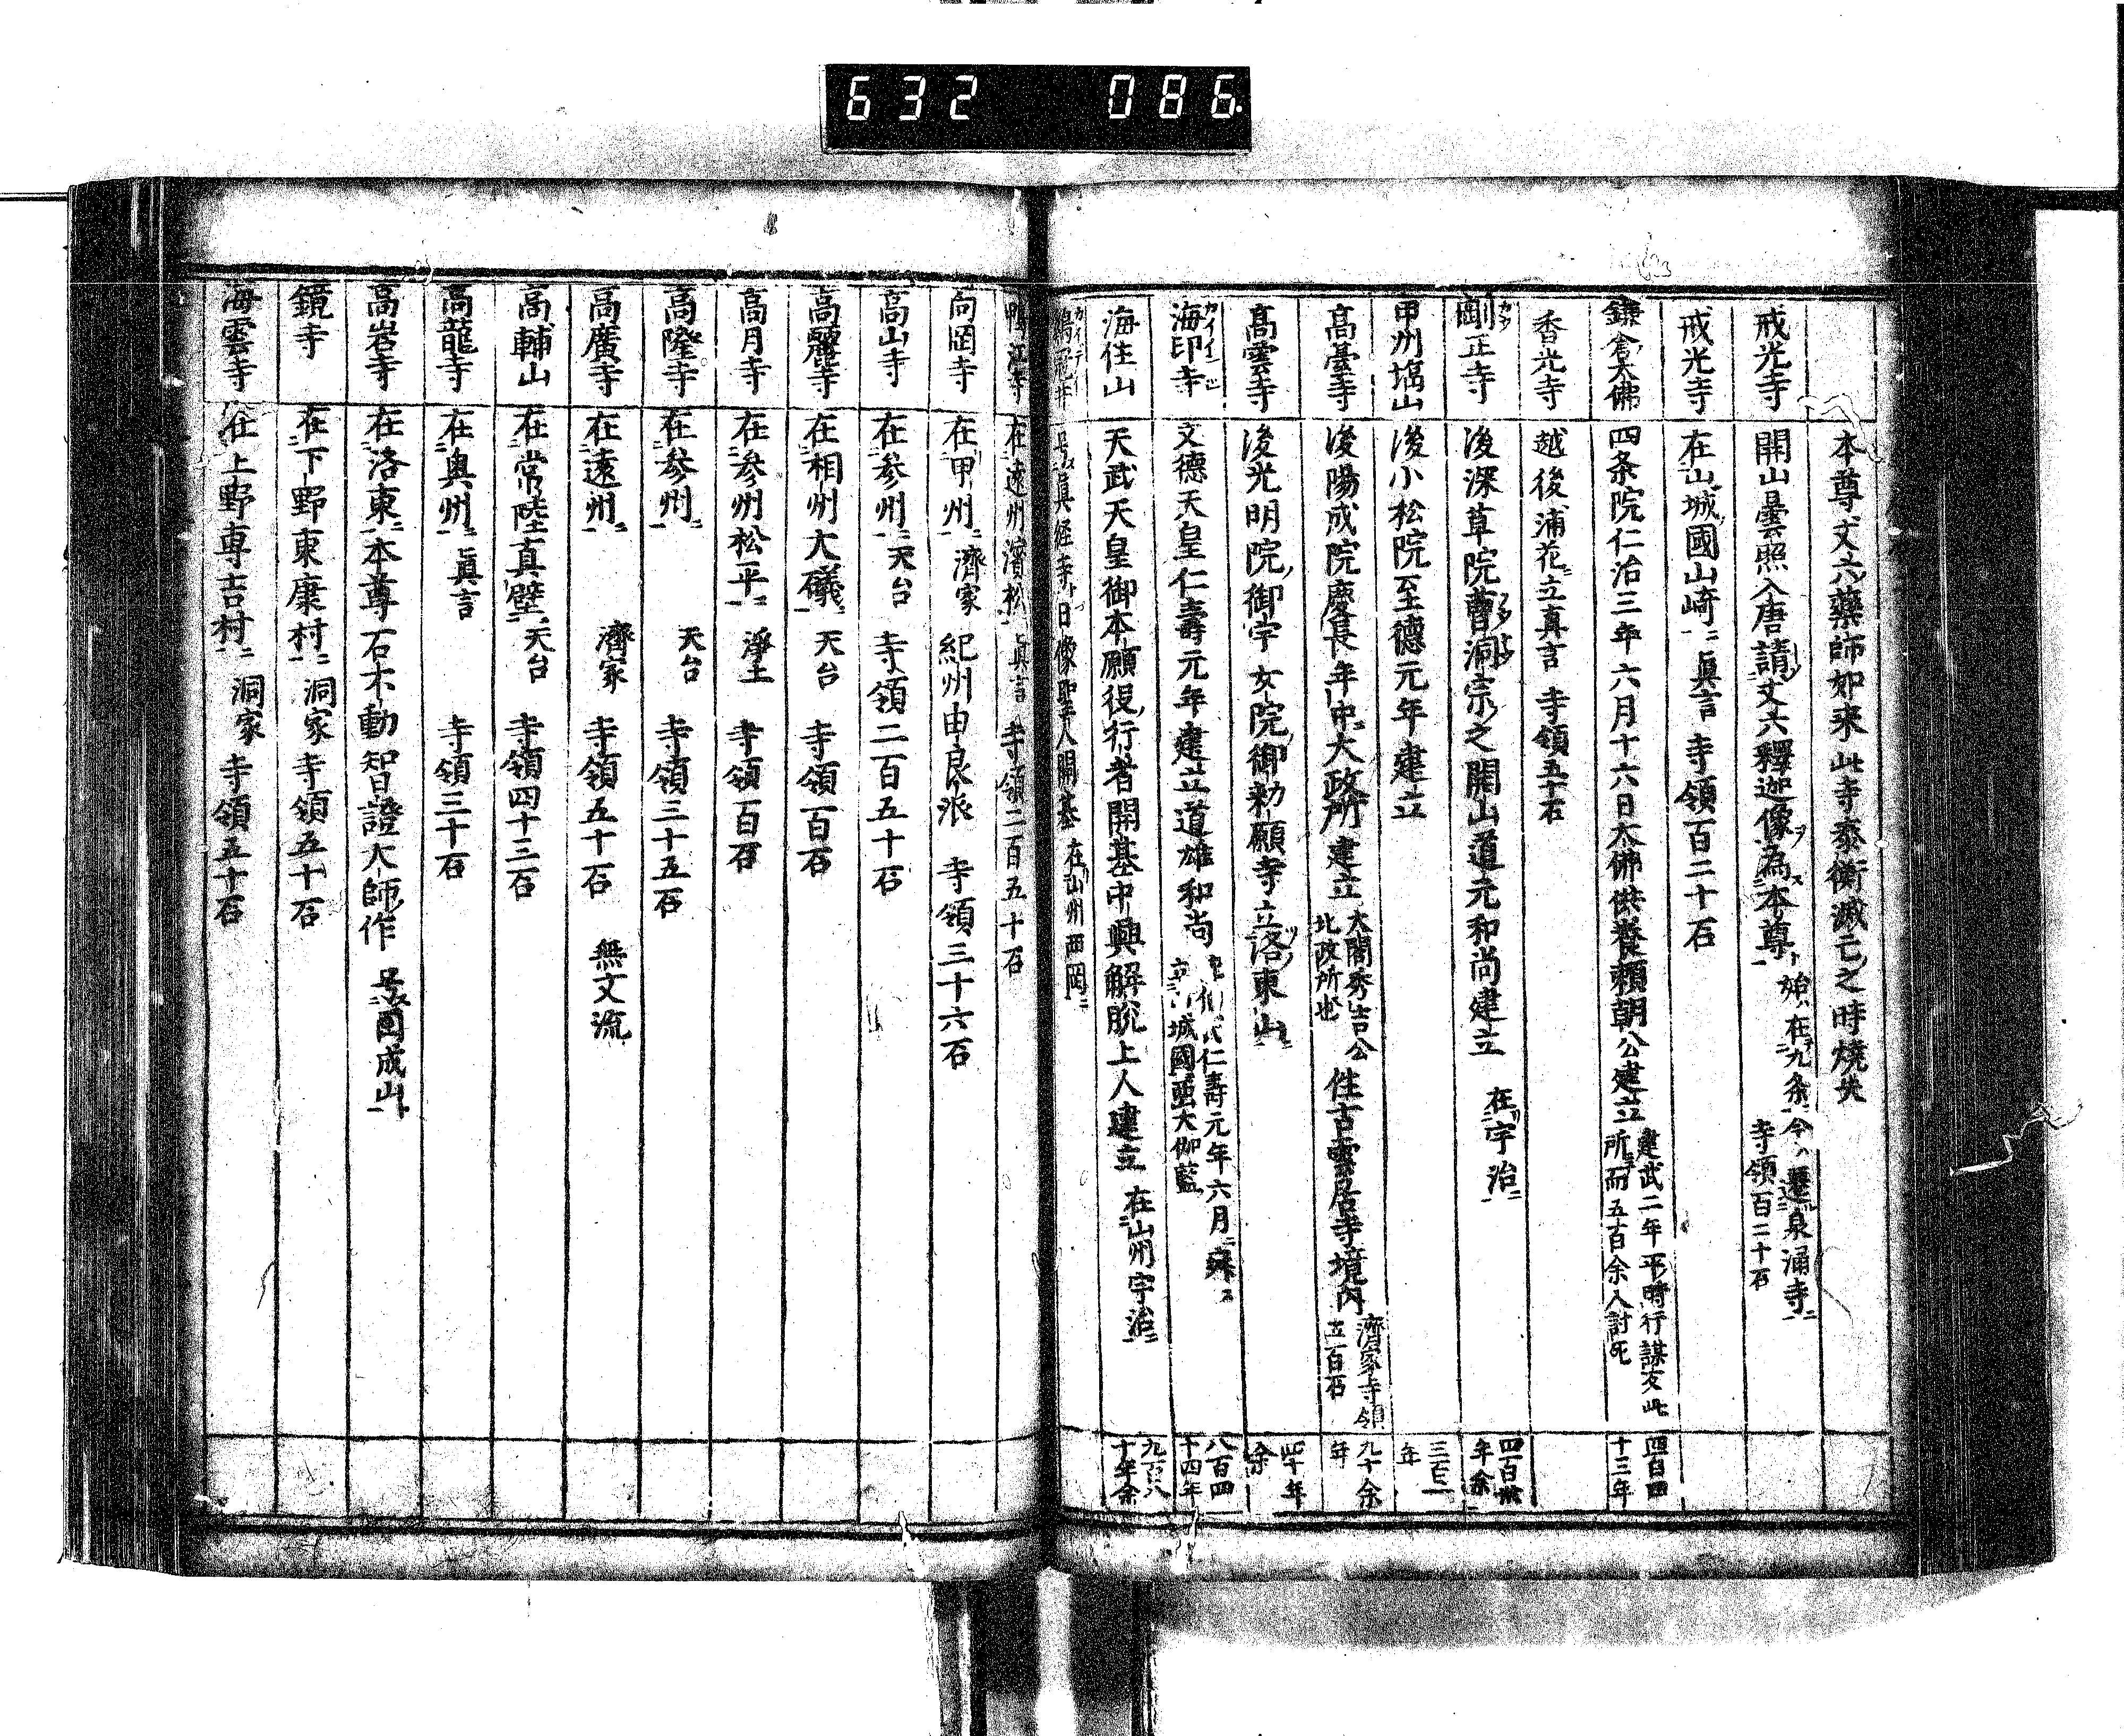 632 086
本尊丈六藥師如来此寺泰衡滅亡之時燒失
戒光寺 開山曇照入唐請丈六釋迦像為本尊 始在九条今遷泉涌寺 寺領百二十石
戒光寺 在山城國山崎 真言 寺領百二十石
鎌倉大佛 四条院仁治三年六月十六日大佛供養賴朝公建立 建武二年平時行謀反此所而五百余人討死 四百四十三年
香光寺 越後浦花立真言 寺領五十石
剛正寺 後深草院曹洞宗之開山道元和尚建立 在宇治 四百年余
甲州塩山 後小松院至德元年建立 三百年
髙臺寺 後陽成院慶長年中大政所建立 大閤秀吉公北政所也 住古雲居寺境内 濟家寺領五百石 九十余年
髙雲寺 後光明院御宇女院御勅願寺立洛東山 四十年余
海印寺 文德天皇仁壽元年建立道雄和尚 仁壽元年六月 城國 大伽藍 八百四十四年
海住山 天武天皇御本願役行者開基中興解脱上人建立 在山州宇治 九百八十年余
鶏冠井 号真経寺日像聖人開基 在山州西岡
鴨江寺 在遠州濱松 真言 寺領二百五十石
髙岡寺 在甲州 濟家 紀州由良派 寺領三十六石
髙山寺 在参州 天台 寺領二百五十石
髙麗寺 在相州大礒 天台 寺領一百石
髙月寺 在参州松平 淨土 寺領百石
髙隆寺 在参州 天台 寺領三十五石
髙廣寺 在遠州 濟家 寺領五十石 無文流
髙輔山 在常陸真壁 天台 寺領四十三石
髙龍寺 在奥州 真言 寺領三十石
髙岩寺 在洛東本尊石不動智證大師作 号圓成山
鏡寺 在下野東康村 洞家 寺領五十石
海雲寺 在上野専吉村 洞家 寺領五十石